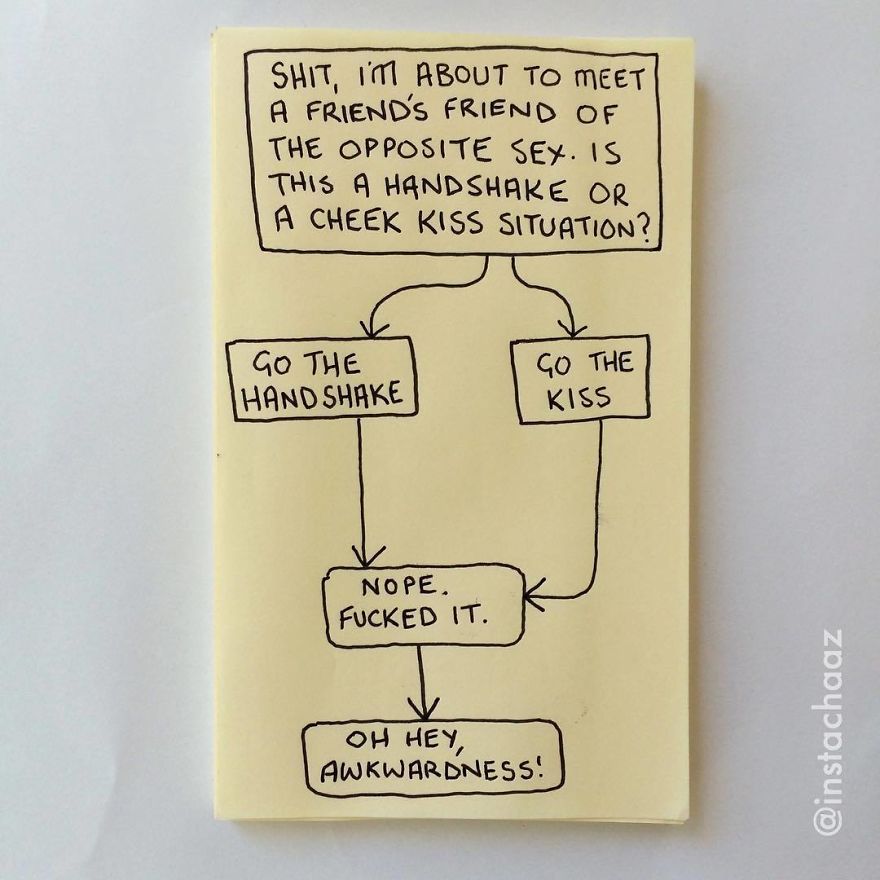 SHIT, I'M ABOUT TO MEET
A FRIEND'S FRIEND OF
THE OPPOSITE SEX. IS
THIS A HANDSHAKE OR
A CHEEK KISS SITUATION?
GO THE
HANDSHAKE
GO THE
KISS
NOPE.
FUCKED IT.
OH HEY,
AWKWARDNESS!
@instachaaz